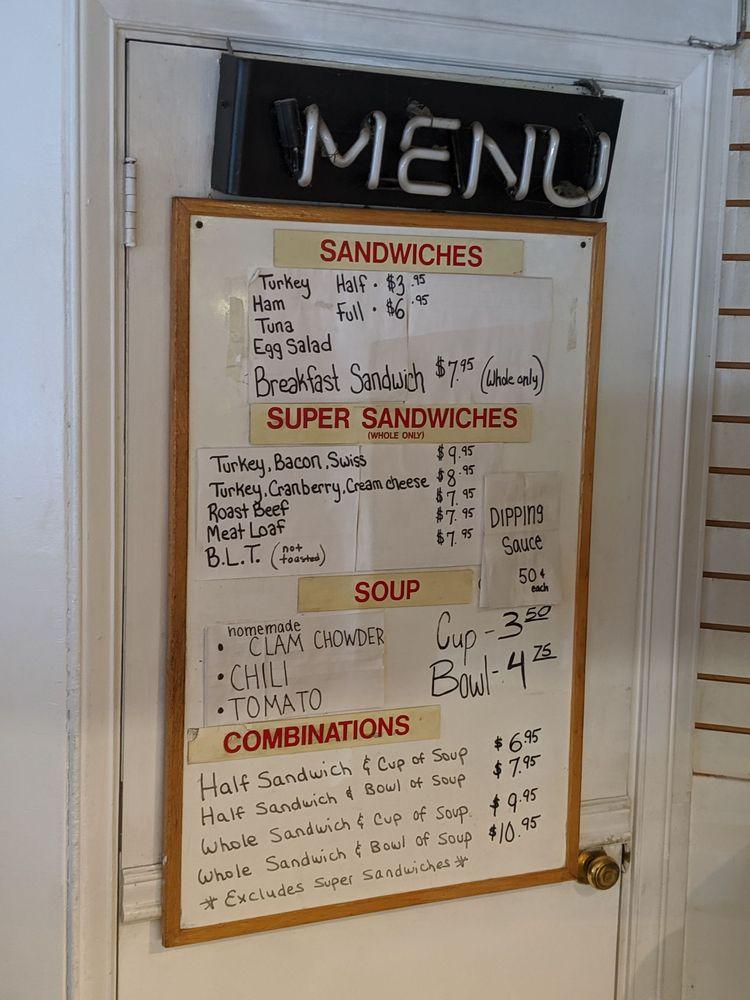 MENU
SANDWICHES
Turkey Half · $3.95
Ham Full · $6.95
Tuna
Egg Salad
Breakfast Sandwich $7.95 (Whole only)
SUPER SANDWICHES
(WHOLE ONLY)
Turkey, Bacon, Swiss $9.95
Turkey, Cranberry, Cream cheese $8.95
Roast Beef $7.95
Meat Loaf $7.95
B.L.T. (not toasted) $7.95
DIPPING
Sauce
50¢
each
SOUP
homemade
• CLAM CHOWDER
• CHILI
• TOMATO
Cup - 3 50
Bowl - 4 75
COMBINATIONS
Half Sandwich & Cup of Soup $6.95
Half Sandwich & Bowl of Soup $7.95
Whole Sandwich & Cup of Soup. $9.95
Whole Sandwich & Bowl of Soup $10.95
* Excludes Super Sandwiches *